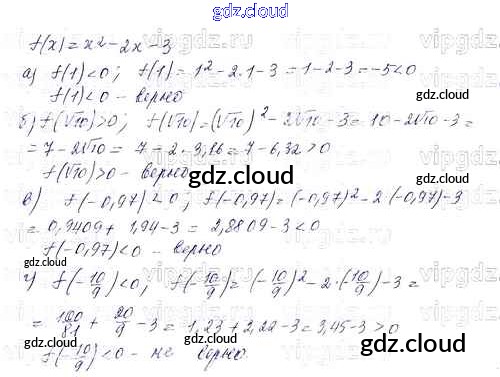 gdz.cloud
f(x) = x² - 2x - 3
а) f(1) < 0; f(1) = 1² - 2·1 - 3 = 1 - 2 - 3 = -5 < 0
f(1) < 0 - верно
gdz.cloud
б) f(√10) > 0; f(√10) = (√10)² - 2√10 - 3 = 10 - 2√10 - 3 =
= 7 - 2√10 = 7 - 2·3,16 = 7 - 6,32 > 0
f(√10) > 0 - верно
gdz.cloud
в) f(-0,97) < 0; f(-0,97) = (-0,97)² - 2·(-0,97) - 3
= 0,9409 + 1,94 - 3 = 2,8809 - 3 < 0
f(-0,97) < 0 - верно
gdz.cloud
г) f(-10/9) < 0; f(-10/9) = (-10/9)² - 2·(10/9) - 3 =
= 100/81 + 20/9 - 3 = 1,23 + 2,22 - 3 = 3,45 - 3 > 0
f(-10/9) < 0 - не верно.
gdz.cloud